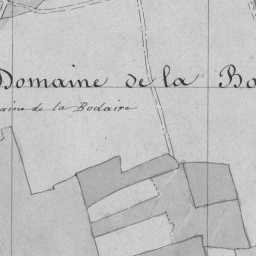 Domaine de la Bo
aine de la Bodaire